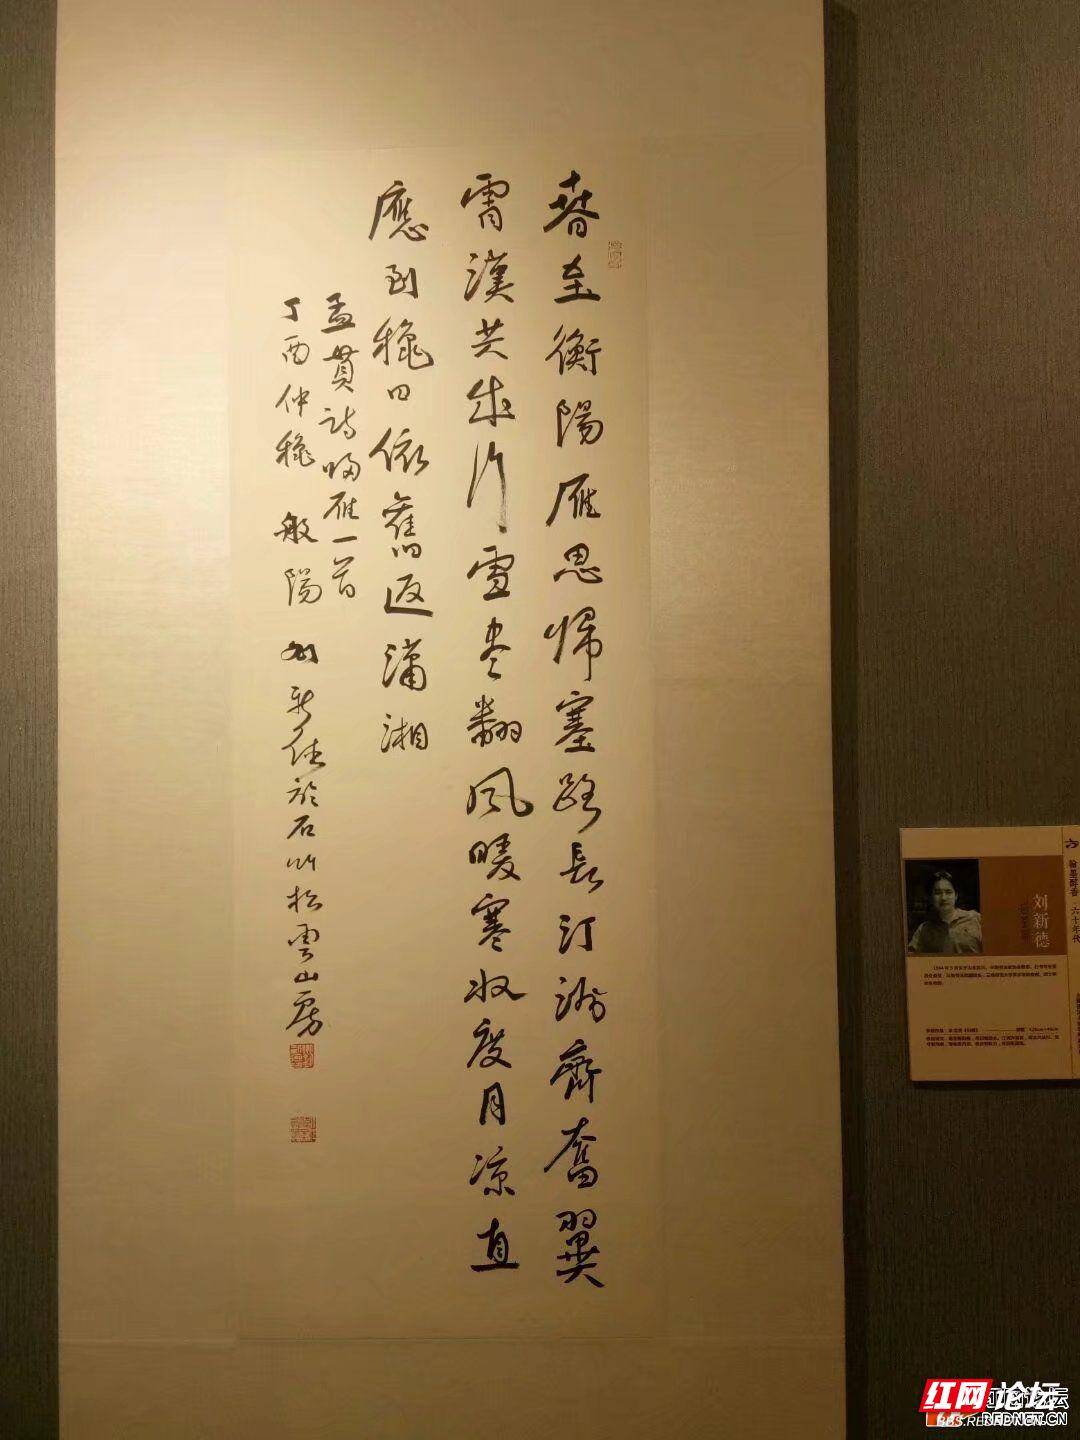 春至衡陽雁思歸塞路長汀洲齊奮翼
霄漢共成行雪盡翻風暖寒收度月涼直
應到秋日依舊返瀟湘
孟貫詩歸雁一首
丁酉仲秋 般陽 劉新德於石竹松雲山房
翰墨醉香·六十年代
刘新德
红网论坛
BBS.REDNET.CN